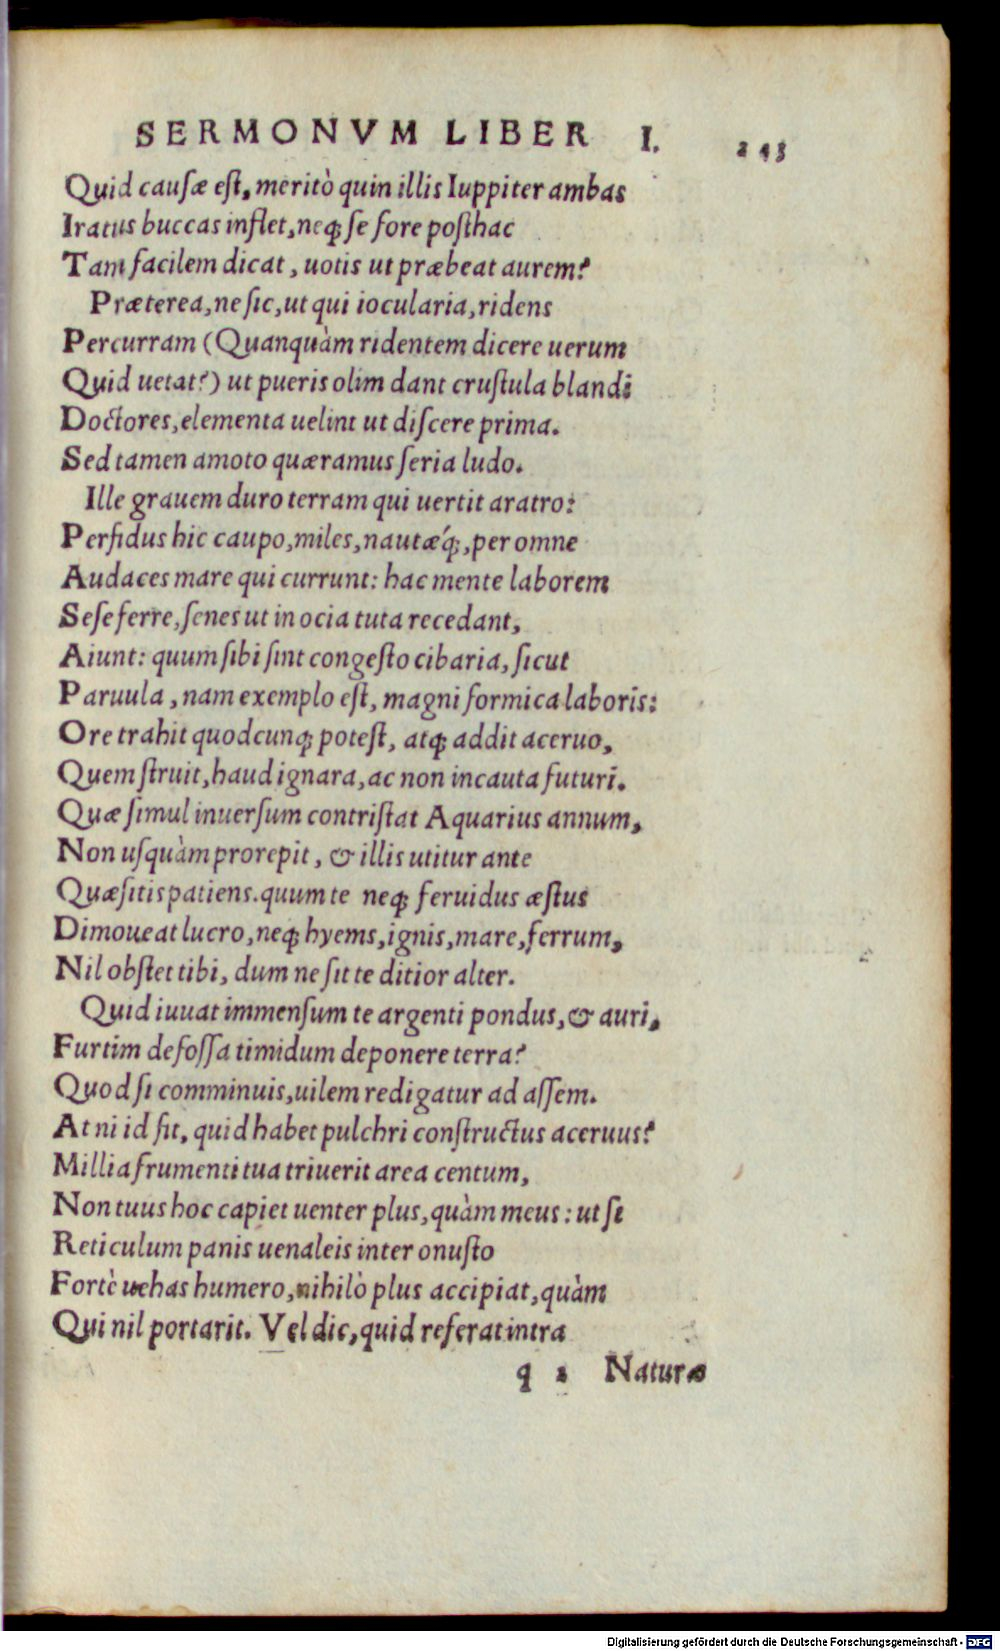 SERMONVM LIBER I. 243
Quid causæ est, meritò quin illis Iuppiter ambas
Iratus buccas inflet, neq; se fore posthac
Tam facilem dicat, uotis ut præbeat aurem?
Præterea, ne sic, ut qui iocularia, ridens
Percurram (Quanquàm ridentem dicere uerum
Quid uetat?) ut pueris olim dant crustula blandi
Doctores, elementa uelint ut discere prima.
Sed tamen amoto quæramus seria ludo.
Ille grauem duro terram qui uertit aratro:
Perfidus hic caupo, miles, nautæq́;, per omne
Audaces mare qui currunt: hac mente laborem
Sese ferre, senes ut in ocia tuta recedant,
Aiunt: quum sibi sint congesto cibaria, sicut
Paruula, nam exemplo est, magni formica laboris:
Ore trahit quodcunq; potest, atq; addit aceruo,
Quem struit, haud ignara, ac non incauta futuri.
Quæ simul inuersum contristat Aquarius annum,
Non usquàm prorepit, & illis utitur ante
Quæsitis patiens. quum te neq; feruidus æstus
Dimoueat lucro, neq; hyems, ignis, mare, ferrum,
Nil obstet tibi, dum ne sit te ditior alter.
Quid iuuat immensum te argenti pondus, & auri,
Furtim defossa timidum deponere terra?
Quod si comminuis, uilem redigatur ad assem.
At ni id fit, quid habet pulchri constructus aceruus?
Millia frumenti tua triuerit area centum,
Non tuus hoc capiet uenter plus, quàm meus: ut si
Reticulum panis uenaleis inter onusto
Fortè uehas humero, nihilò plus accipiat, quàm
Qui nil portarit. Vel dic, quid referat intra
q 2 Naturæ
Digitalisierung gefördert durch die Deutsche Forschungsgemeinschaft - DFG